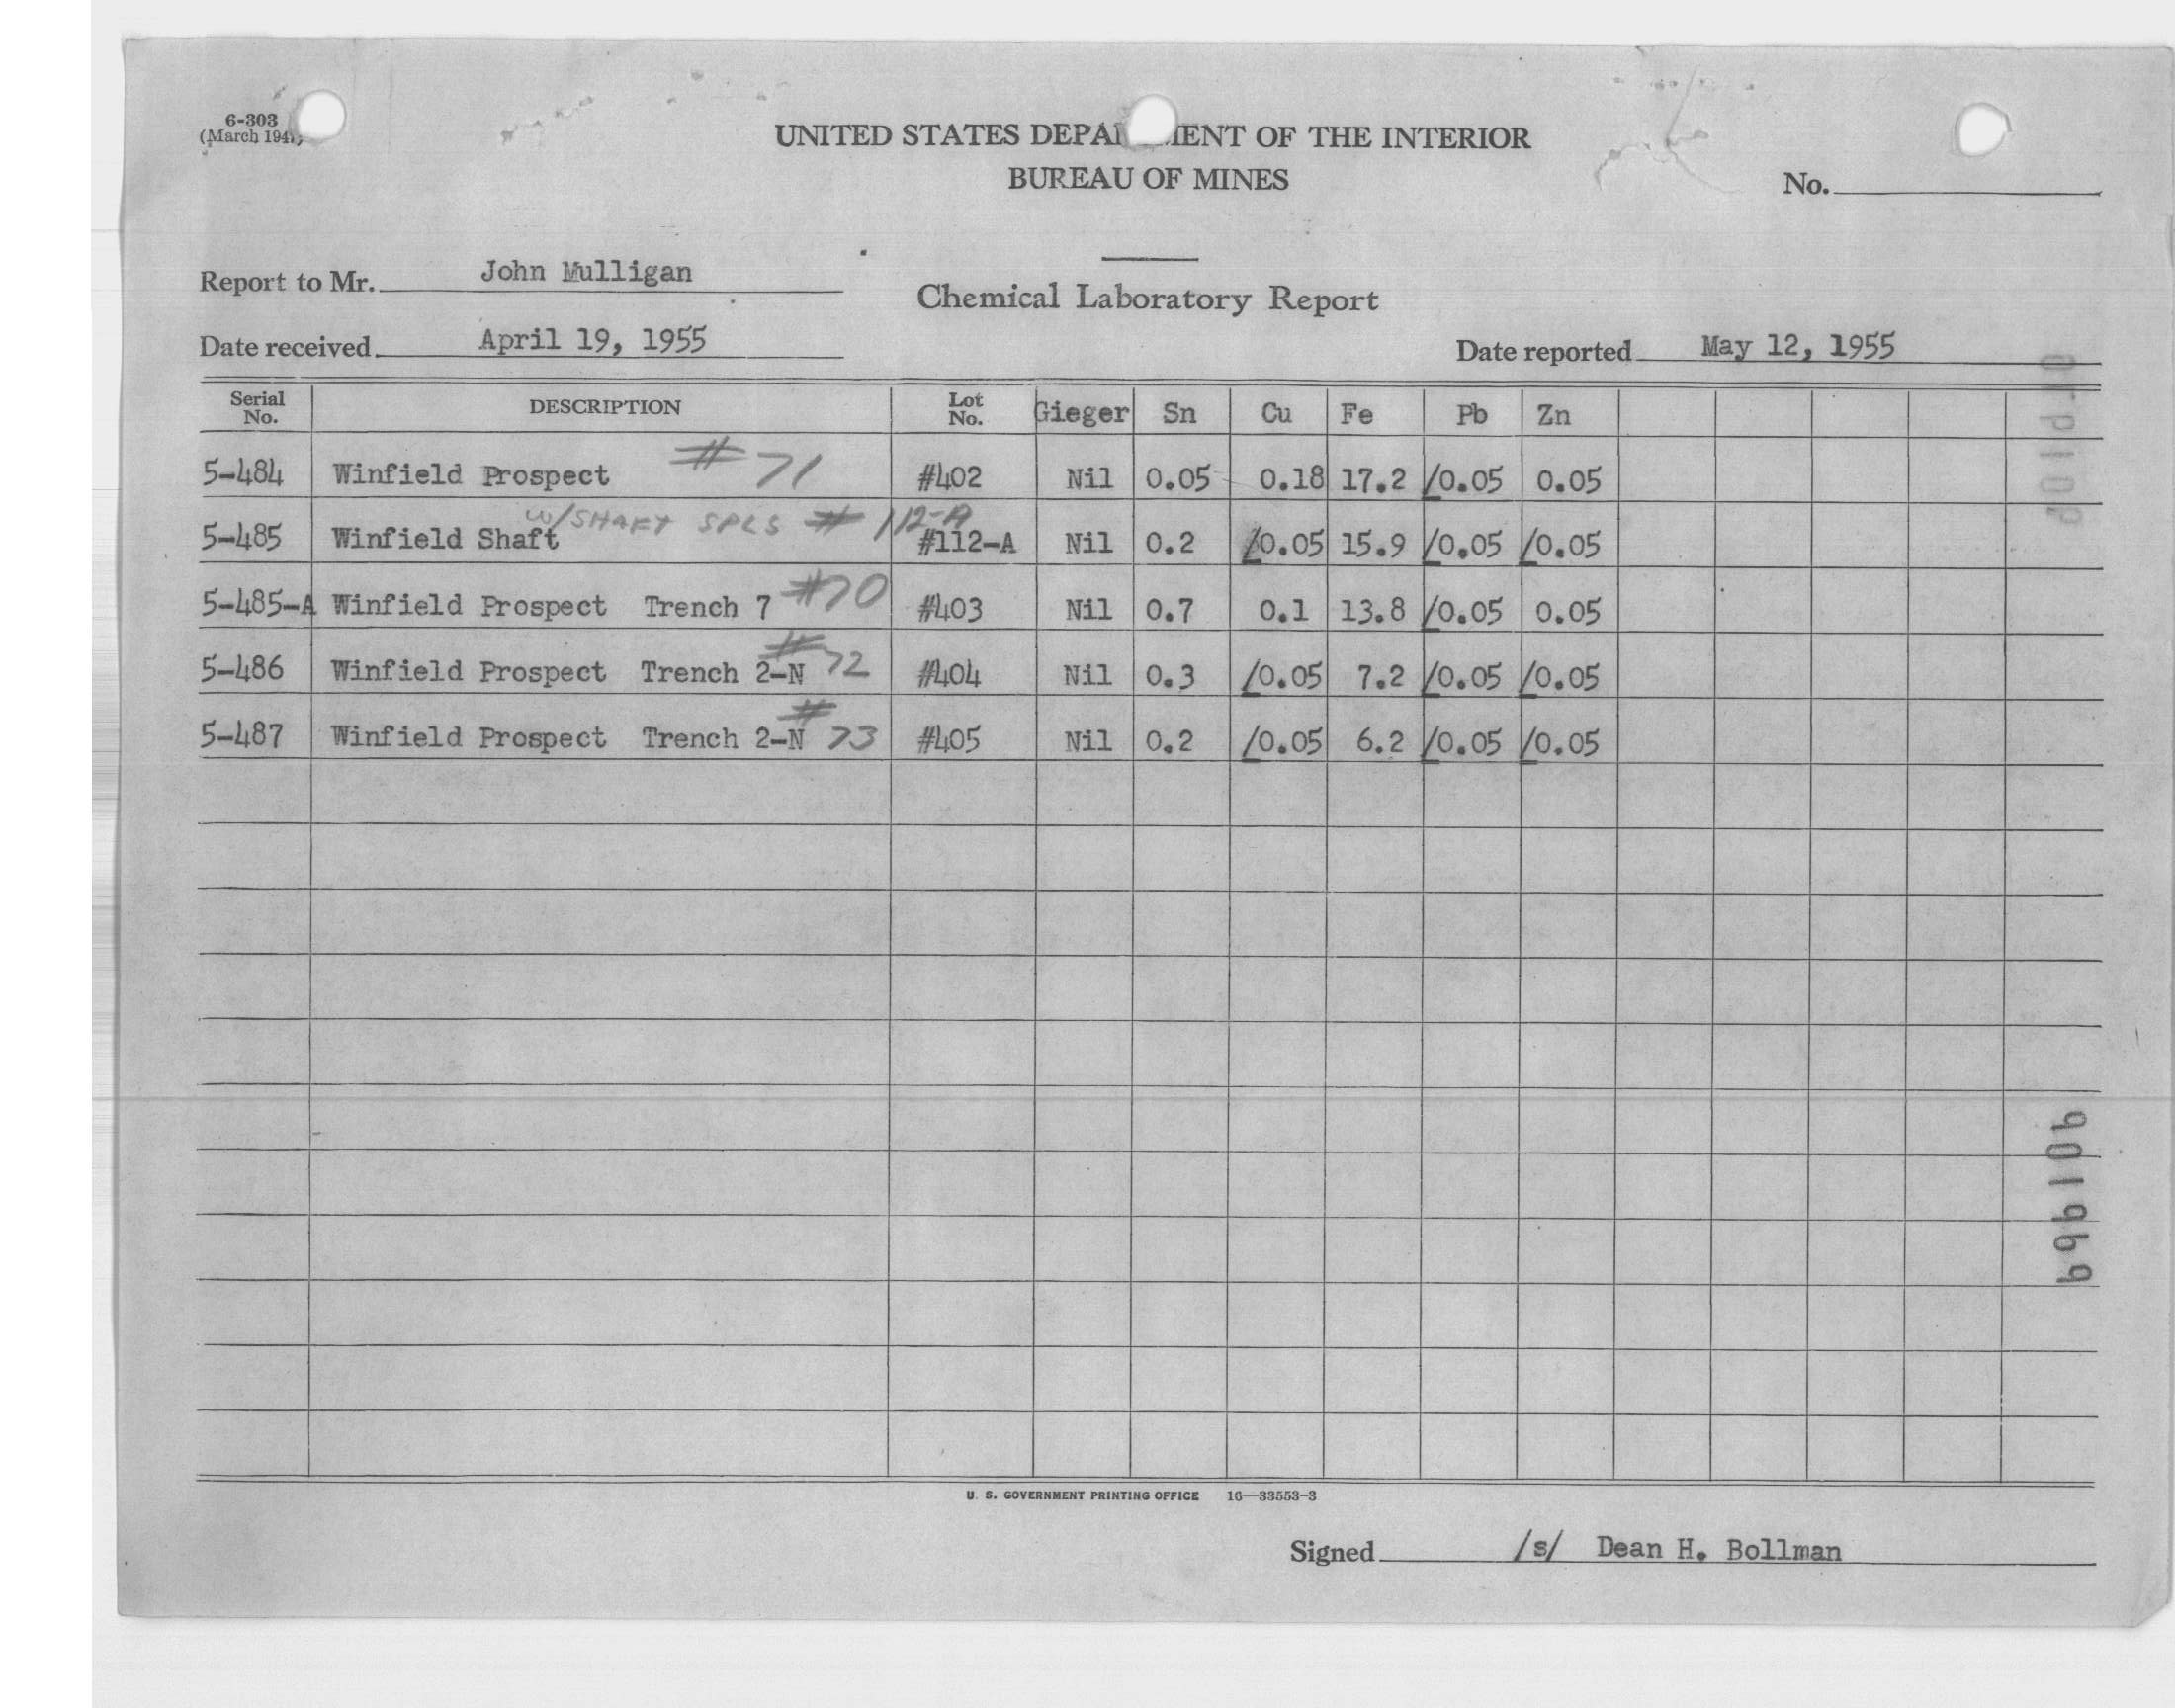 6-303
(March 194
UNITED STATES DEPA MENT OF THE INTERIOR
BUREAU OF MINES
No.
Report to Mr. John Mulligan
Chemical Laboratory Report
Date received April 19, 1955
Date reported May 12, 1955
Serial No. DESCRIPTION Lot No. Gieger Sn Cu Fe Pb Zn
5-484 Winfield Prospect #71 #402 Nil 0.05 0.18 17.2 /0.05 0.05
w/SHAFT SPLS # 112-A
5-485 Winfield Shaft #112-A Nil 0.2 /0.05 15.9 /0.05 /0.05
5-485-A Winfield Prospect Trench 7 #70 #403 Nil 0.7 0.1 13.8 /0.05 0.05
5-486 Winfield Prospect Trench 2-N #72 #404 Nil 0.3 /0.05 7.2 /0.05 /0.05
5-487 Winfield Prospect Trench 2-N #73 #405 Nil 0.2 /0.05 6.2 /0.05 /0.05
U. S. GOVERNMENT PRINTING OFFICE 16—33553-3
Signed /s/ Dean H. Bollman